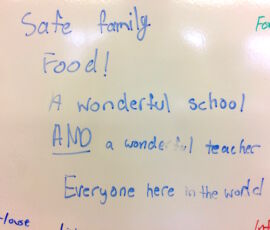 Safe family
Food!
A wonderful school
AND a wonderful teacher
Everyone here in the world
House